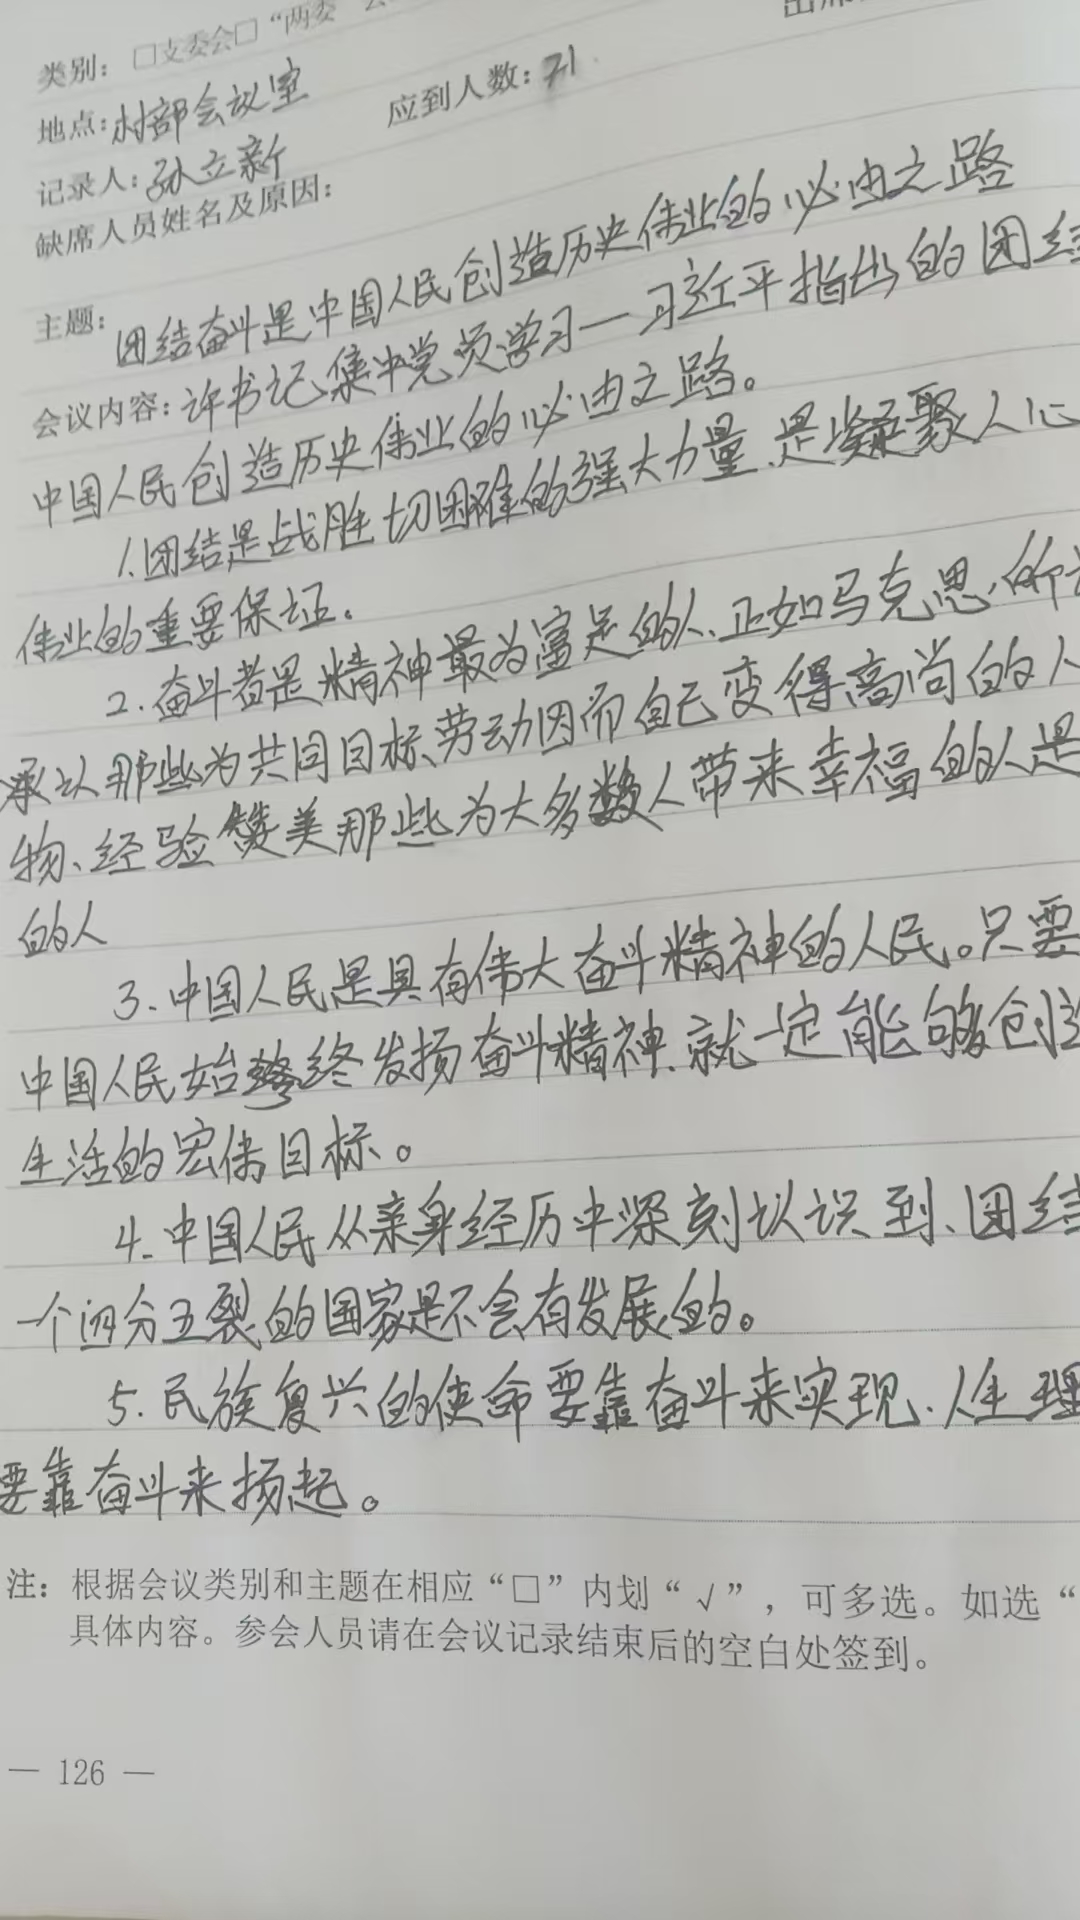 类别：□支委会□“两委
出席
地点：村部会议室
应到人数：31
记录人：孙立新
缺席人员姓名及原因：
主题：团结奋斗是中国人民创造历史伟业的必由之路
会议内容：许书记集中党员学习一习近平指出的团结
中国人民创造历史伟业的必由之路。
1.团结是战胜一切困难的强大力量、是凝聚人心
伟业的重要保证。
2.奋斗者是精神最为富足的人、正如马克思、所
承认那些为共同目标、劳动因而自己变得高尚的人
物、经验赞美那些为大多数人带来幸福的人是
的人
3.中国人民是具有伟大奋斗精神的人民。只要
中国人民始终发扬奋斗精神、就一定能够创造
生活的宏伟目标。
4.中国人民从亲身经历中深刻认识到、团结
一个四分五裂的国家是不会有发展的。
5.民族复兴的使命要靠奋斗来实现、人生理
要靠奋斗来扬起。
注：根据会议类别和主题在相应“□”内划“√”，可多选。如选“
具体内容。参会人员请在会议记录结束后的空白处签到。
— 126 —